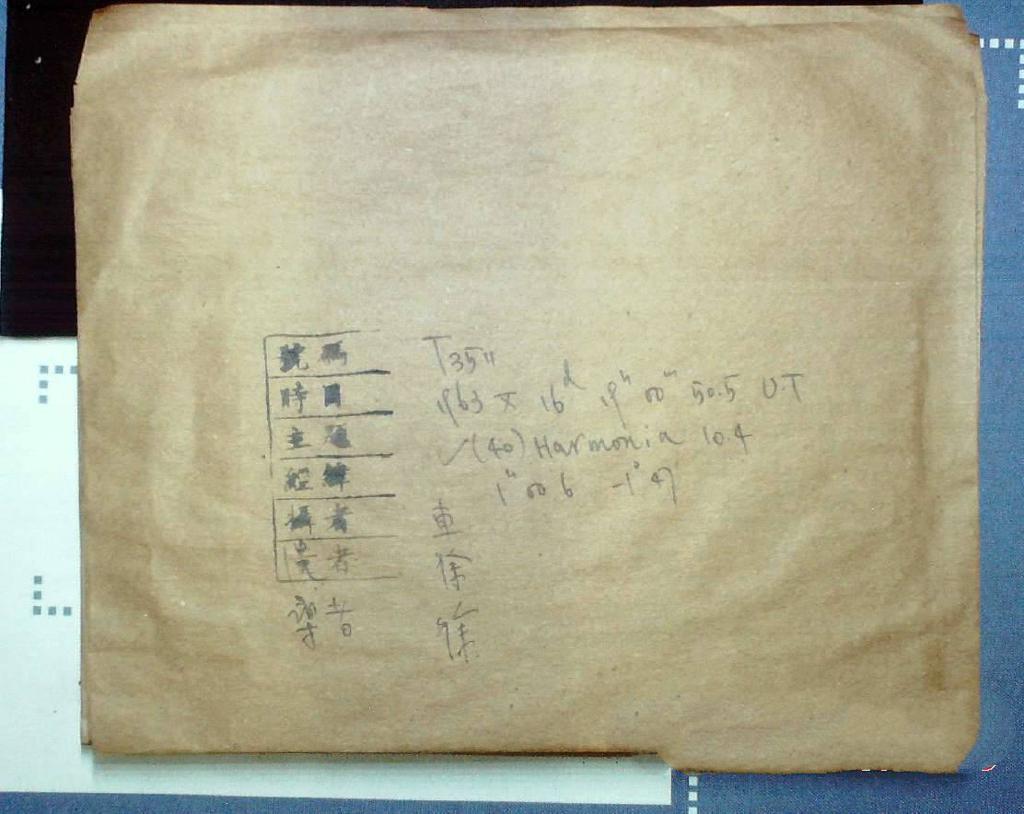 號碼 T3511
時間 1963 X 16ᵈ 19ʰ 00ᵐ 50.5 U.T
主題 ✓(40) Harmonia 10.4
經緯 1ʰ 00 6 -1° 47
攝者 車
者 徐
者 徐